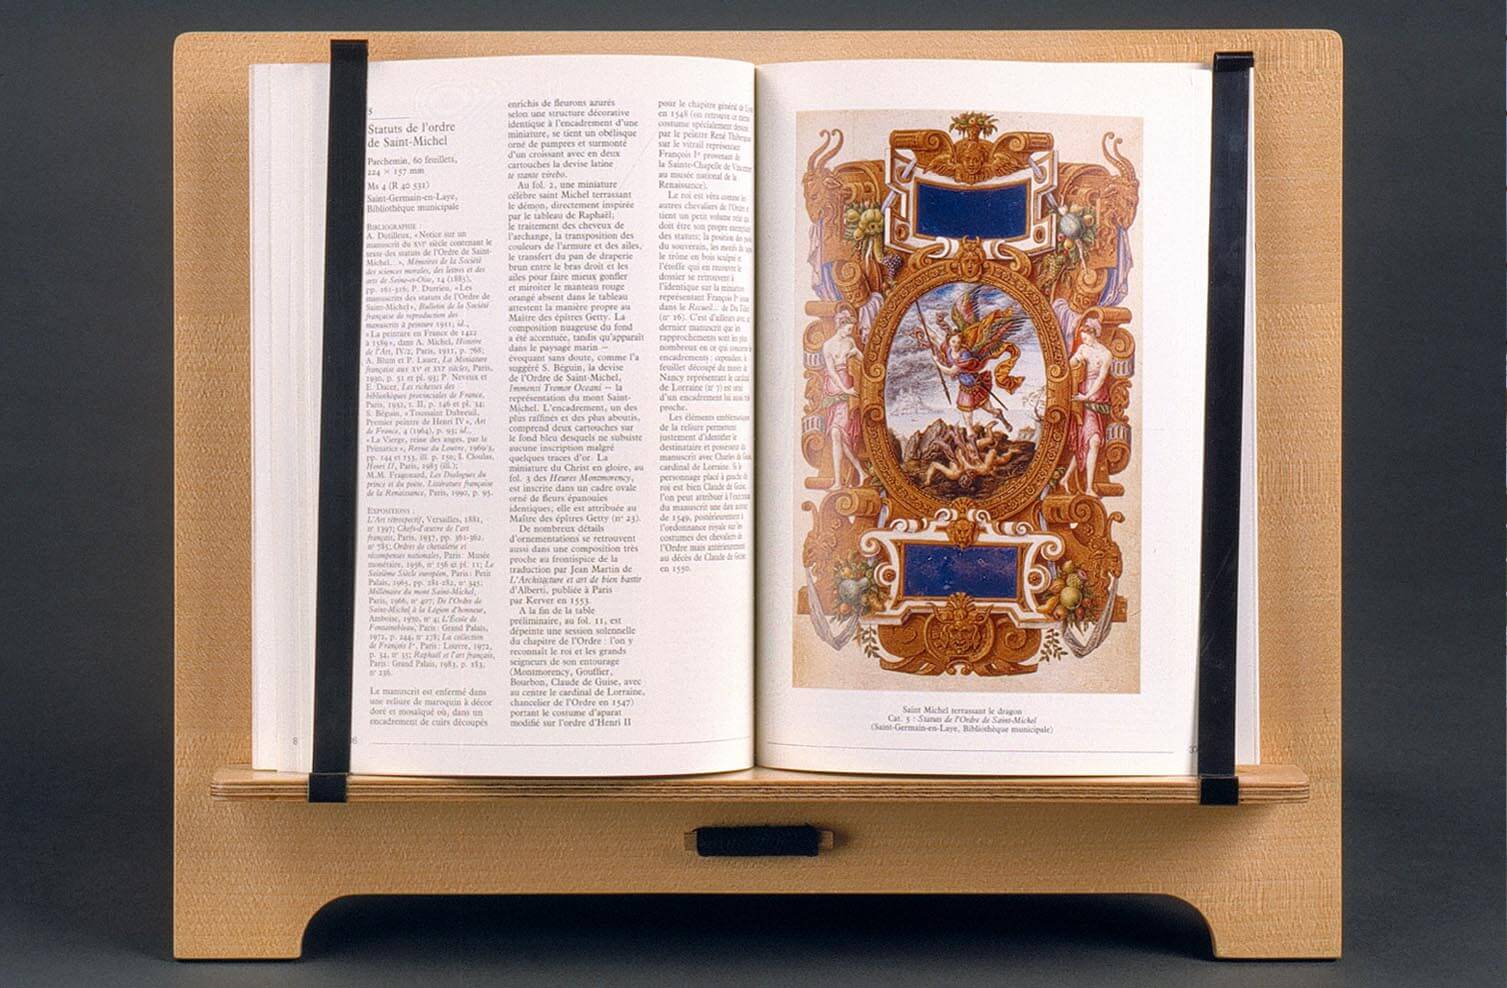 5
Statuts de l'ordre
de Saint-Michel
Parchemin, 60 feuillets,
224 × 157 mm
Ms 4 (R 40 531)
Saint-Germain-en-Laye,
Bibliothèque municipale
BIBLIOGRAPHIE :
A. Dutilleux, «Notice sur un
manuscrit du XVIe siècle contenant le
texte des statuts de l'Ordre de Saint-
Michel. », Mémoires de la Société
des sciences morales, des lettres et des
arts de Seine-et-Oise, 14 (1885),
pp. 261-316; P. Durrieu, «Les
manuscrits des statuts de l'Ordre de
Saint-Michel», Bulletin de la Société
française de reproduction des
manuscrits à peinture 1911; id.,
«La peinture en France de 1422
à 1589», dans A. Michel, Histoire
de l'Art, IV/2, Paris, 1911, p. 768;
A. Blum et P. Lauer, La Miniature
française aux XVe et XVIe siècles, Paris,
1930, p. 51 et pl. 93; P. Neveux et
E. Dacier, Les richesses des
bibliothèques provinciales de France,
Paris, 1932, t. II, p. 146 et pl. 34;
S. Béguin, «Toussaint Dubreuil,
Premier peintre de Henri IV», Art
de France, 4 (1964), p. 95; id.,
«La Vierge, reine des anges, par le
Primatice», Revue du Louvre, 1969/3,
pp. 144 et 153, ill. p. 150; I. Cloulas,
Henri II, Paris, 1985 (ill.);
M.M. Fragonard, Les Dialogues du
prince et du poète, Littérature française
de la Renaissance, Paris, 1990, p. 95.
EXPOSITIONS :
L'Art rétrospectif, Versailles, 1881,
n° 1397; Chefs-d'œuvre de l'art
français, Paris, 1937, pp. 361-362,
n° 785; Ordres de chevalerie et
récompenses nationales, Paris: Musée
monétaire, 1956, n° 156 et pl. 11; Le
Seizième Siècle européen, Paris: Petit
Palais, 1965, pp. 281-282, n° 345;
Millénaire du mont Saint-Michel,
Paris, 1966, n° 407; De l'Ordre de
Saint-Michel à la Légion d'honneur,
Amboise, 1970, n° 4; L'École de
Fontainebleau, Paris: Grand Palais,
1972, p. 244, n° 278; La collection
de François Ier, Paris: Louvre, 1972,
p. 34, n° 35; Raphaël et l'art français,
Paris: Grand Palais, 1983, p. 183,
n° 236.
Le manuscrit est enfermé dans
une reliure de maroquin à décor
doré et mosaïqué où, dans un
encadrement de cuirs découpés
enrichis de fleurons azurés
selon une structure décorative
identique à l'encadrement d'une
miniature, se tient un obélisque
orné de pampres et surmonté
d'un croissant avec en deux
cartouches la devise latine
te stante virebo.
Au fol. 2, une miniature
célèbre saint Michel terrassant
le démon, directement inspirée
par le tableau de Raphaël;
le traitement des cheveux de
l'archange, la transposition des
couleurs de l'armure et des ailes,
le transfert du pan de draperie
brun entre le bras droit et les
ailes pour faire mieux gonfler
et miroiter le manteau rouge
orangé absent dans le tableau
attestent la manière propre au
Maître des épîtres Getty. La
composition nuageuse du fond
a été accentuée, tandis qu'apparaît
dans le paysage marin —
évoquant sans doute, comme l'a
suggéré S. Béguin, la devise
de l'Ordre de Saint-Michel,
Immensi Tremor Oceani — la
représentation du mont Saint-
Michel. L'encadrement, un des
plus raffinés et des plus aboutis,
comprend deux cartouches sur
le fond bleu desquels ne subsiste
aucune inscription malgré
quelques traces d'or. La
miniature du Christ en gloire, au
fol. 3 des Heures Montmorency,
est inscrite dans un cadre ovale
orné de fleurs épanouies
identiques; elle est attribuée au
Maître des épîtres Getty (n° 23).
De nombreux détails
d'ornementations se retrouvent
aussi dans une composition très
proche au frontispice de la
traduction par Jean Martin de
L'Architecture et art de bien bastir
d'Alberti, publiée à Paris
par Kerver en 1553.
A la fin de la table
préliminaire, au fol. 11, est
dépeinte une session solennelle
du chapitre de l'Ordre : l'on y
reconnaît le roi et les grands
seigneurs de son entourage
(Montmorency, Gouffier,
Bourbon, Claude de Guise, avec
au centre le cardinal de Lorraine,
chancelier de l'Ordre en 1547)
portant le costume d'apparat
modifié sur l'ordre d'Henri II
pour le chapitre général de
en 1548 (on retrouve ce même
costume spécialement dessiné
par le peintre René
sur le vitrail représentant
François Ier provenant de
la Sainte-Chapelle de Vincennes
au musée national de la
Renaissance).
Le roi est vêtu comme les
autres chevaliers de l'Ordre et
tient un petit volume relié qui
doit être son propre exemplaire
des statuts; la position des
du souverain, les motifs
le trône en bois sculpté et
l'étoffe qui en recouvre le
dossier se retrouvent à
l'identique sur la miniature
représentant François Ier
dans le Recueil... de Du Tillet
(n° 16). C'est d'ailleurs avec ce
dernier manuscrit que les
rapprochements sont les plus
nombreux en ce qui concerne les
encadrements : cependant le
feuillet découpé du musée de
Nancy représentant le cardinal
de Lorraine (n° 7) est orné
d'un encadrement lui aussi très
proche.
Les éléments emblématiques
de la reliure permettent
justement d'identifier le
destinataire et possesseur du
manuscrit avec Charles de Guise,
cardinal de Lorraine. Si le
personnage placé à gauche du
roi est bien Claude de Guise,
l'on peut attribuer à l'exécution
du manuscrit une date autour
de 1549, postérieurement à
l'ordonnance royale sur les
costumes des chevaliers de
l'Ordre mais antérieurement
au décès de Claude de Guise
en 1550.
8
36
Saint Michel terrassant le dragon
Cat. 5 : Statuts de l'Ordre de Saint-Michel
(Saint-Germain-en-Laye, Bibliothèque municipale)